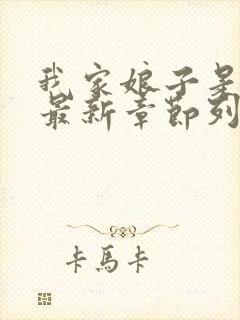 我家娘子是
最新章节列
卡馬卡